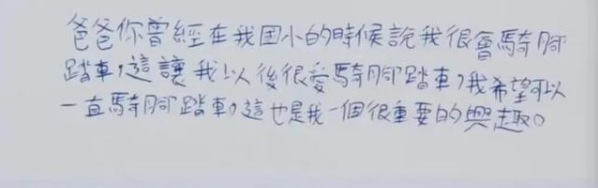 爸爸你曾經在我国小的時候說我很會騎腳
踏車,這讓我以後很愛騎腳踏車,我希望可以
一直騎腳踏車,這也是我一個很重要的興趣。